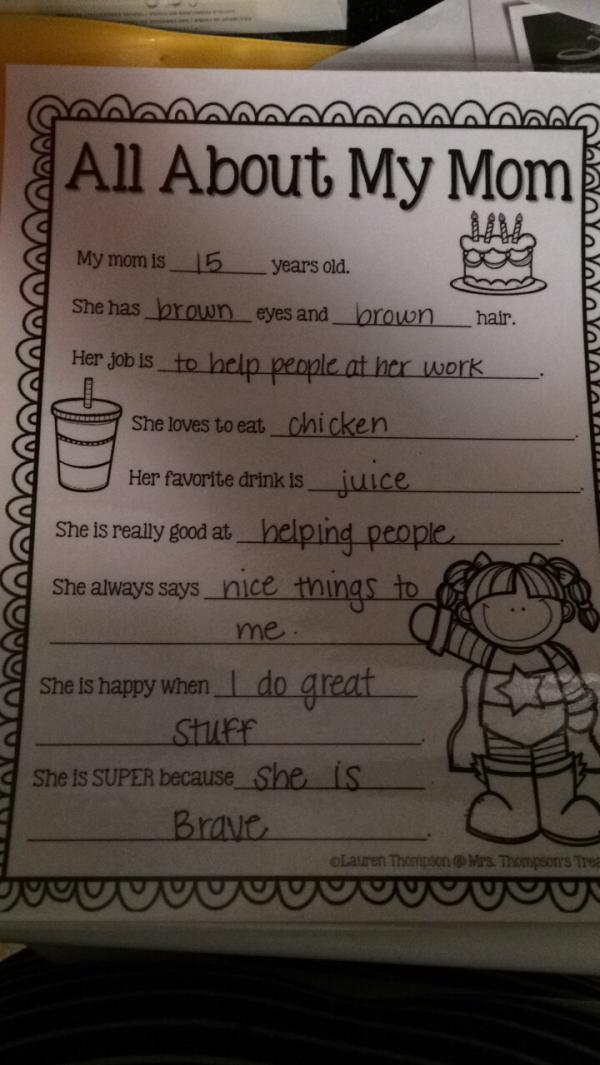 All About My Mom
My mom is 15 years old.
She has brown eyes and brown hair.
Her job is to help people at her work.
She loves to eat chicken.
Her favorite drink is juice.
She is really good at helping people.
She always says nice things to
me.
She is happy when I do great
stuff.
She is SUPER because she is
Brave.
©Lauren Thompson @ Mrs. Thompson's